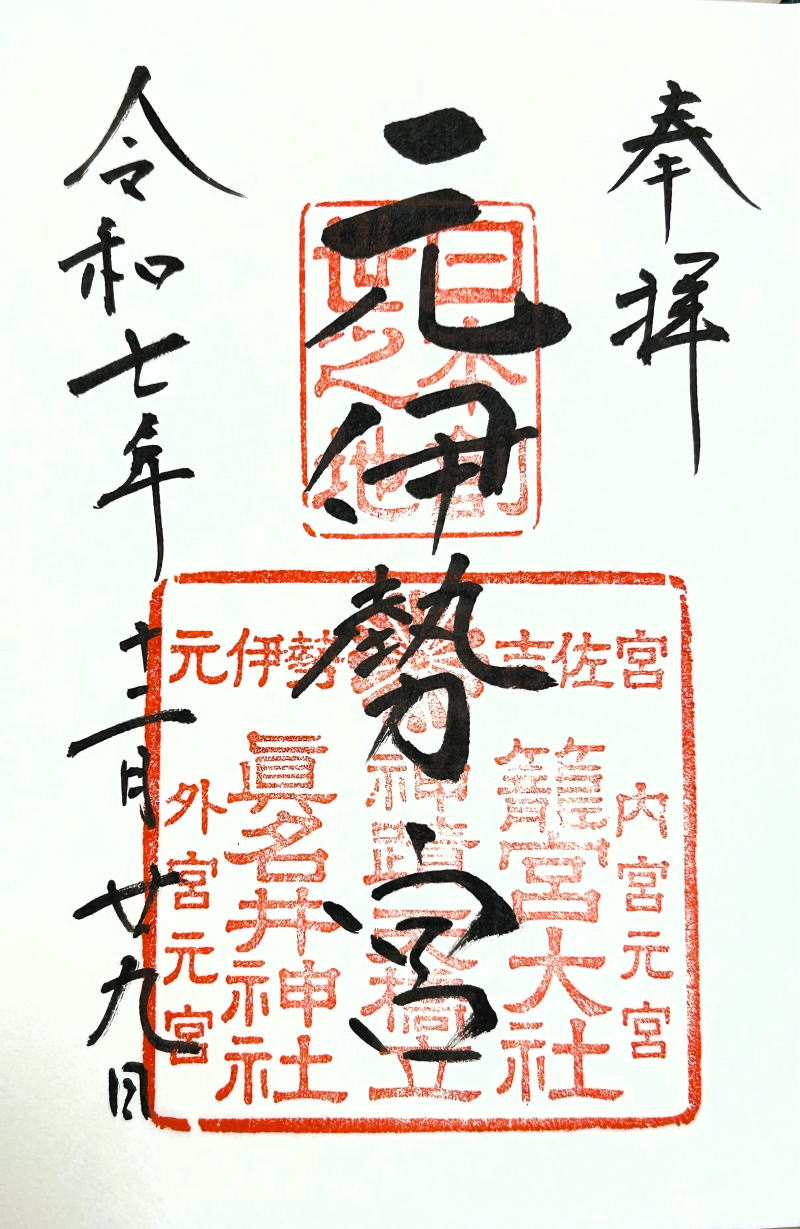 奉拝
元伊勢宮
令和七年十二月廿九日
日本創
世之地
元伊勢 吉佐宮
内宮元宮
籠宮大社
神蹟天橋立
眞名井神社
外宮元宮